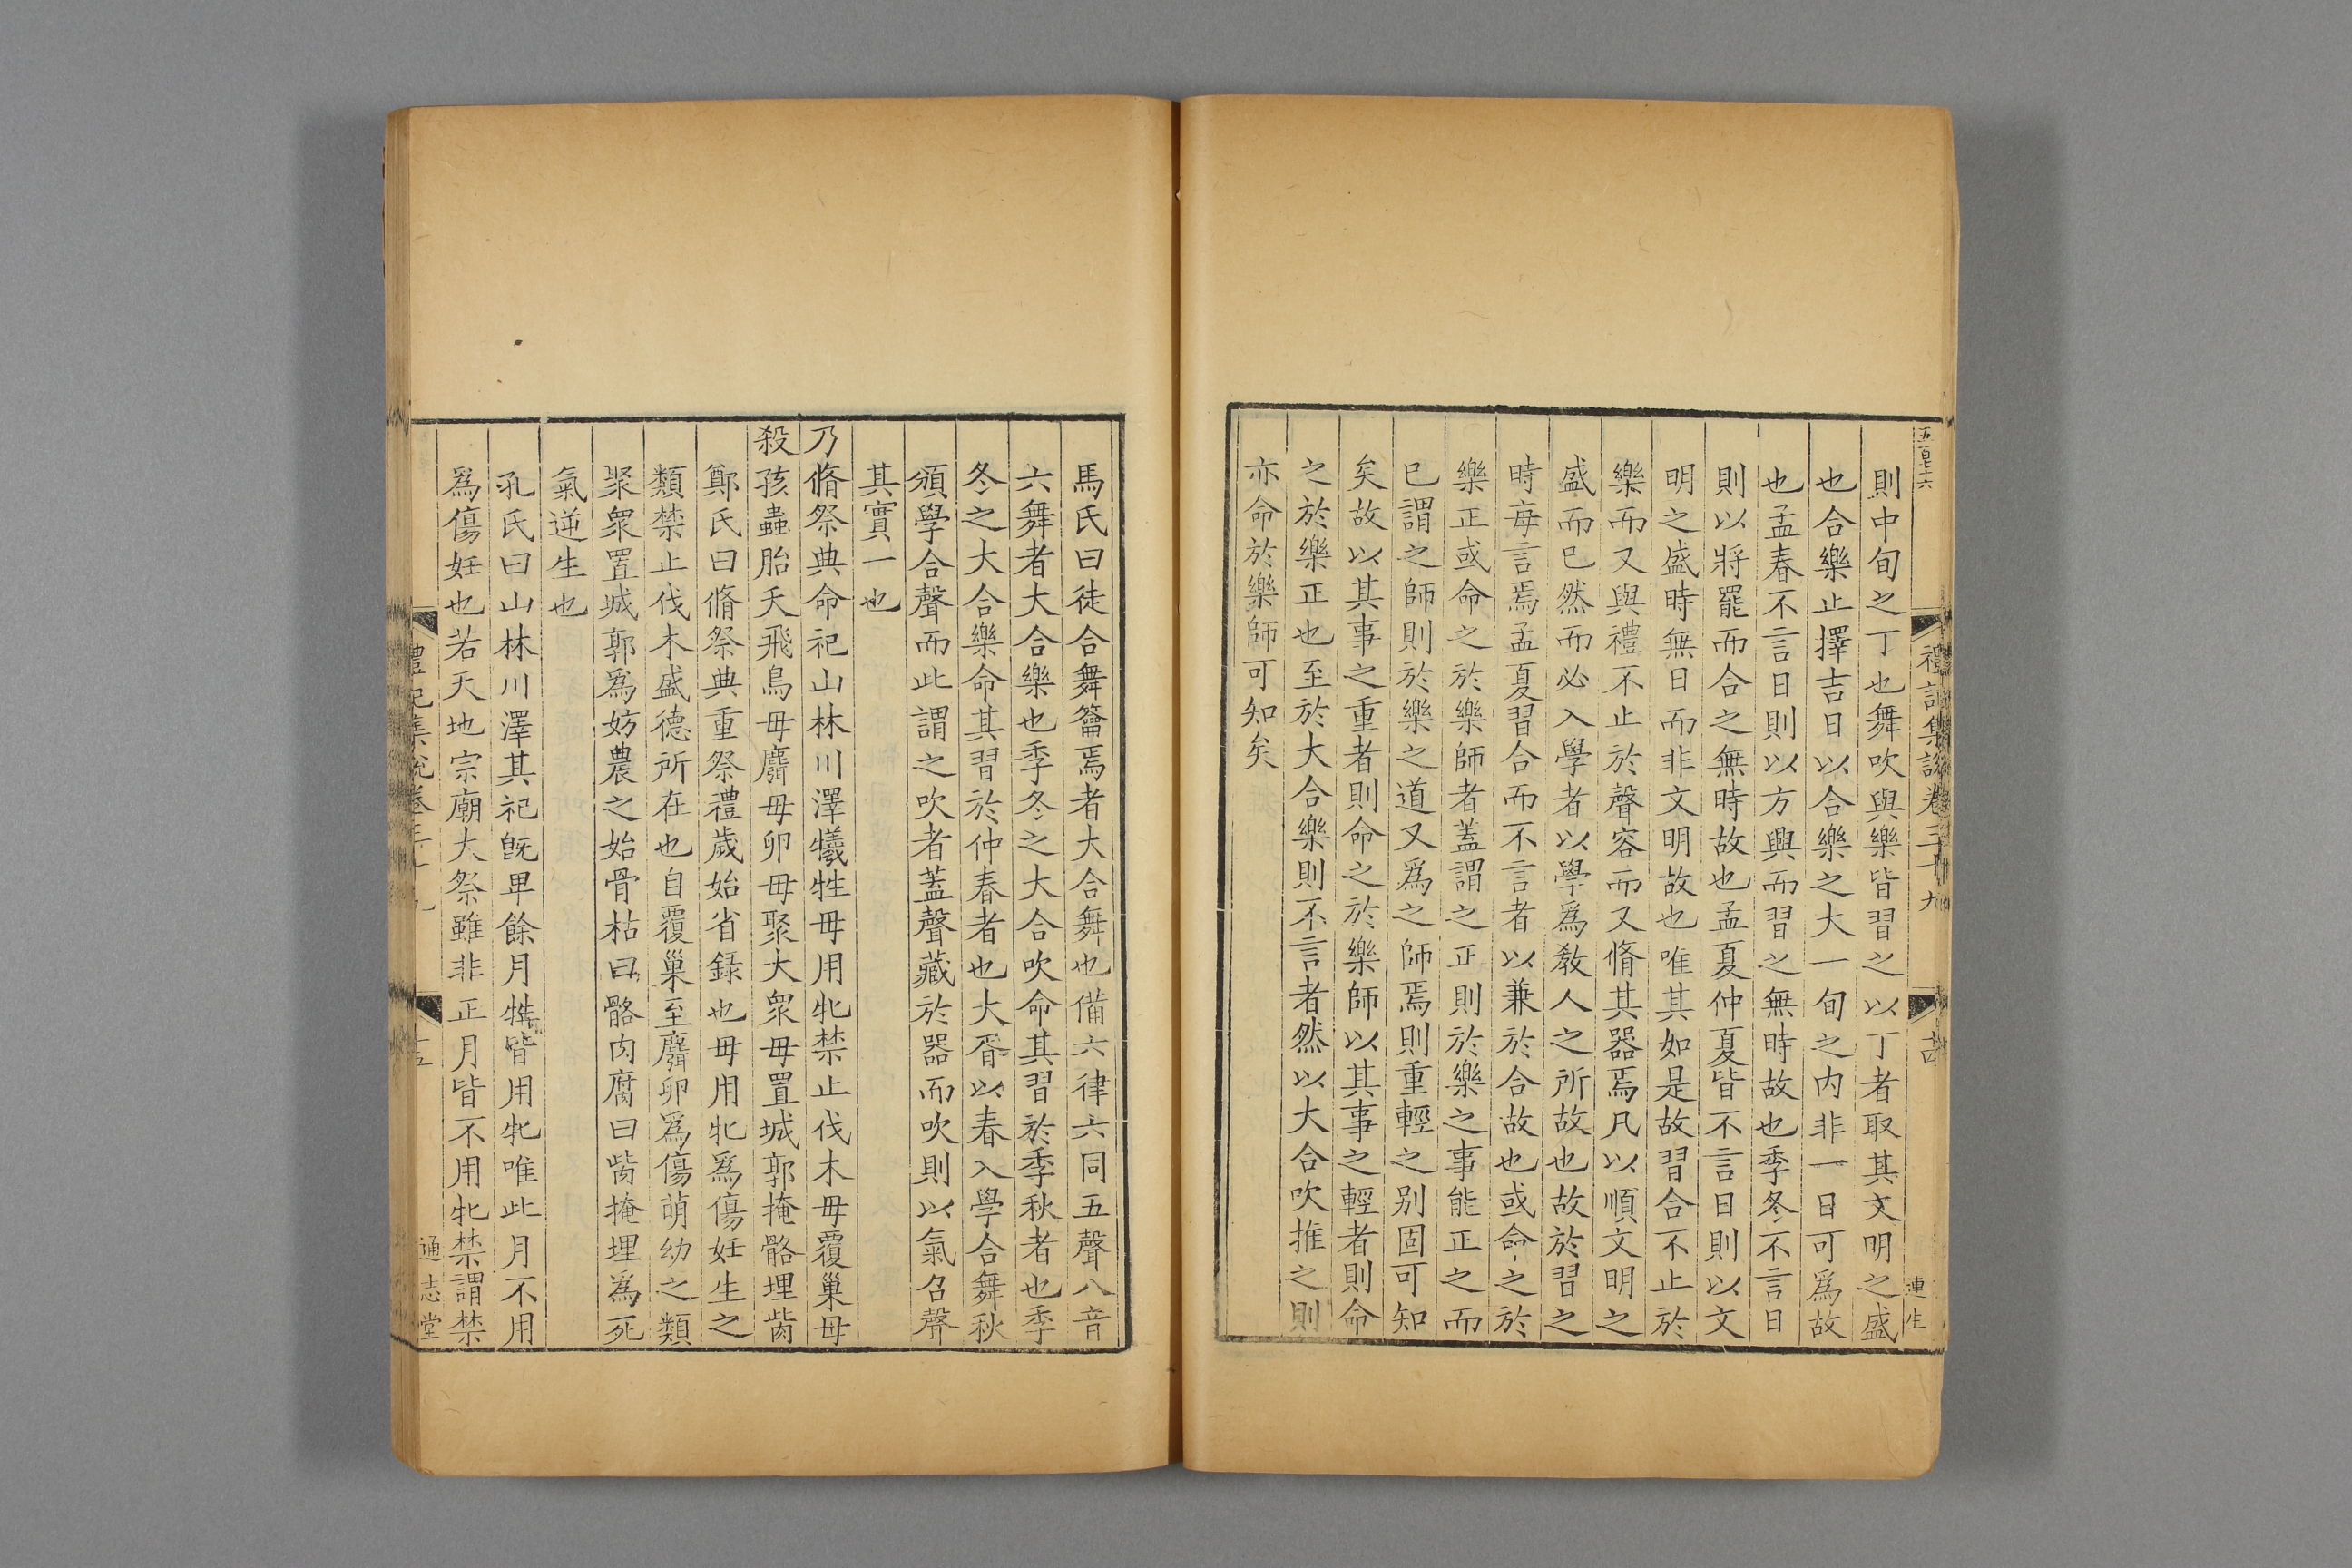 五百七十六
禮記集説卷三十九
十四
連生
則中旬之丁也舞吹與樂皆習之以丁者取其文明之盛
也合樂止擇吉日以合樂之大一旬之内非一日可爲故
也孟春不言日則以方興而習之無時故也季冬不言日
則以將罷而合之無時故也孟夏仲夏皆不言日則以文
明之盛時無日而非文明故也唯其如是故習合不止於
樂而又與禮不止於聲容而又脩其器焉凡以順文明之
盛而已然而必入學者以學爲教人之所故也故於習之
時每言焉孟夏習合而不言者以兼於合故也或命之於
樂正或命之於樂師者蓋謂之正則於樂之事能正之而
已謂之師則於樂之道又爲之師焉則重輕之别固可知
矣故以其事之重者則命之於樂師以其事之輕者則命
之於樂正也至於大合樂則不言者然以大合吹推之則
亦命於樂師可知矣
馬氏曰徒合舞籥焉者大合舞也備六律六同五聲八音
六舞者大合樂也季冬之大合吹命其習於季秋者也季
冬之大合樂命其習於仲春者也大胥以春入學合舞秋
頒學合聲而此謂之吹者蓋聲藏於器而吹則以氣召聲
其實一也
乃脩祭典命祀山林川澤犧牲毋用牝禁止伐木毋覆巢毋
殺孩蟲胎夭飛鳥毋麛毋卵毋聚大衆毋置城郭掩骼埋胔
鄭氏曰脩祭典重祭禮歲始省録也毋用牝爲傷妊生之
類禁止伐木盛德所在也自覆巢至麛卵爲傷萌幼之類
聚衆置城郭爲妨農之始骨枯曰骼肉腐曰胔掩埋爲死
氣逆生也
孔氏曰山林川澤其祀既卑餘月牲皆用牝唯此月不用
爲傷妊也若天地宗廟大祭雖非正月皆不用牝禁謂禁
禮記集說卷三十九
十五
通志堂